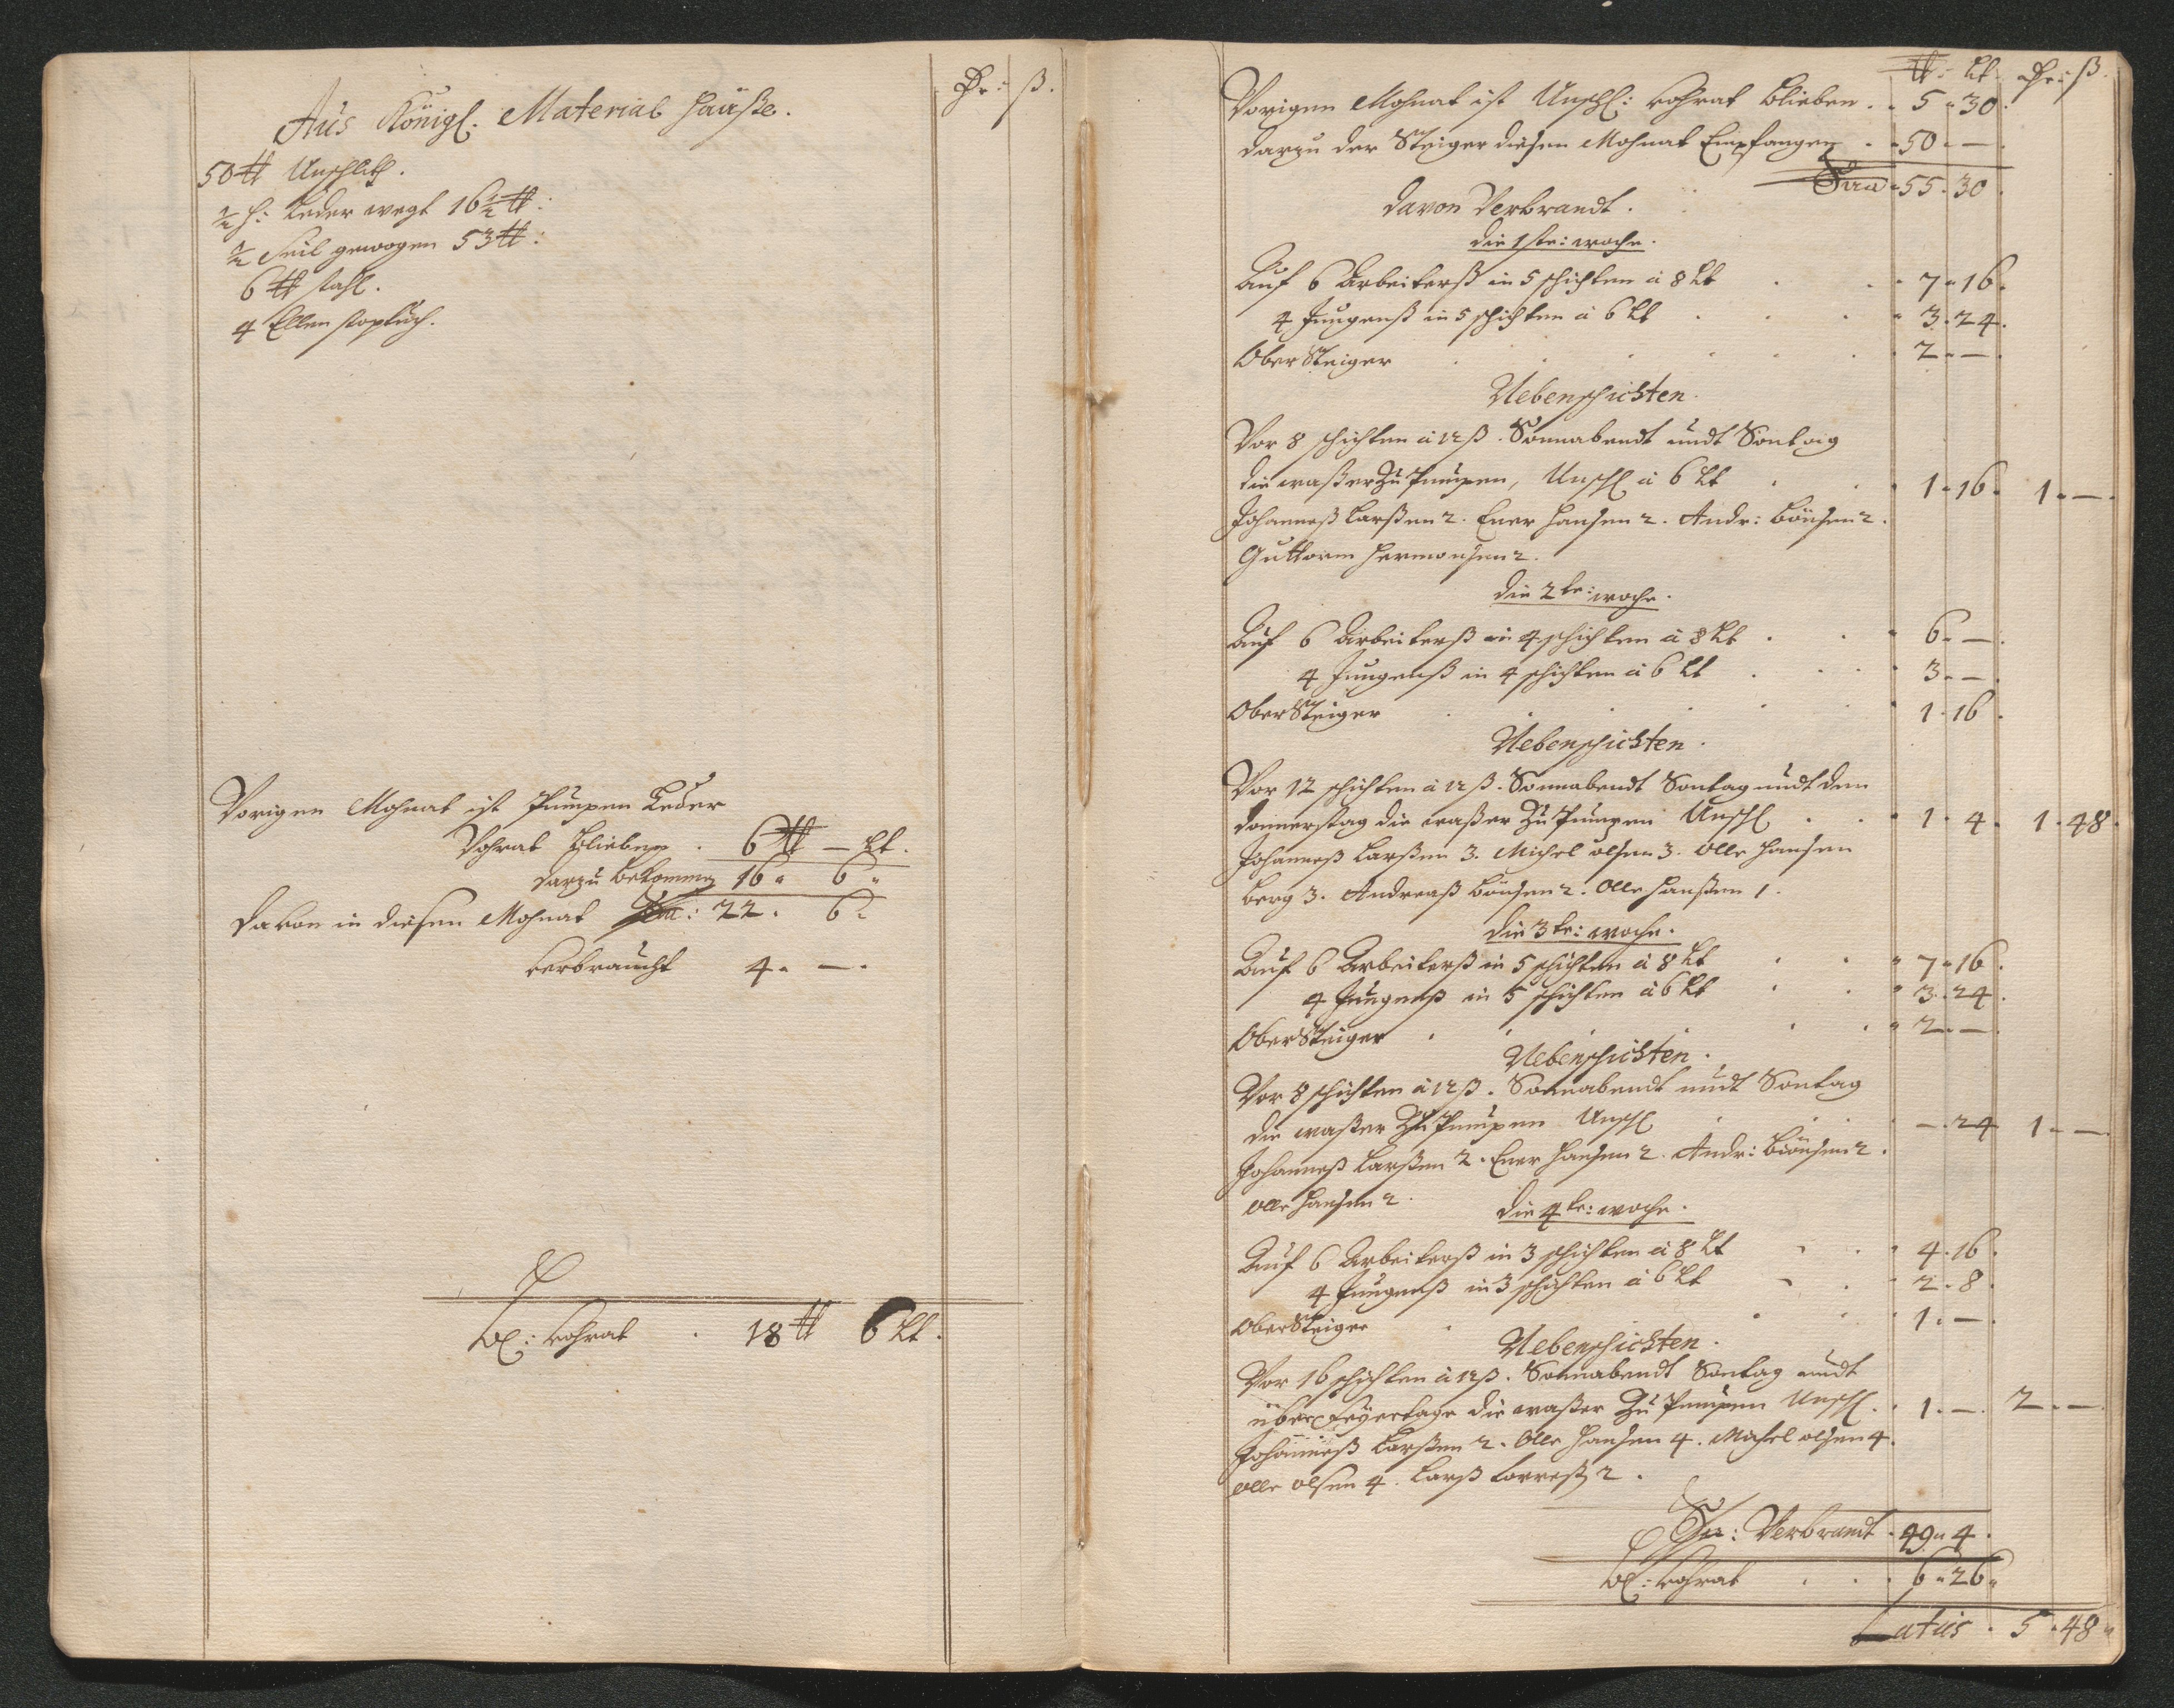 Rr: ß.
Aus Königl. Material Hauße.
50 ℔ Unschlith.
½ H: Leder wegt 16½ ℔:
½ Seil gewogen 53 ℔:
6 ℔ stahl.
4 Ellen stoptuch.
Vorigen Mohnat ist Pumpen Leder
Vohrat blieben . 6 ℔ — Lt.
darzu bekommen 16 " 6 "
davon in diesen Mohnat Sa: 22 . 6 "
verbraucht 4 . — .
bl: vohrat . 18 ℔ 6 Lt.
℔: Lt. Rr: ß.
Vorigen Mohnat ist Unschl: vohrat blieben . . 5 " 30 .
darzu der Steiger diesen Mohnat Empfangen . . 50 . — .
Sma . 55 . 30 .
davon Verbrandt .
die 1ste: woche .
Auf 6 Arbeiterß in 5 schichten à 8 Lt . . . 7 " 16 .
4 Jungenß in 5 schichten à 6 Lt . . . 3 . 24 .
Ober Steiger . . . . 2 . — .
Nebenschichten .
Vor 8 schichten à 12 ß . Sonnabendt undt Sontag
die waßer Zu Pumpen, Unschl à 6 Lt . . 1 . 16 . 1 . — .
Johanneß Larßen 2 . Ener Hansen 2 . Andr: Bönsen 2 .
Guttorm Hermansen 2 .
die 2te: woche .
Auf 6 Arbeiterß in 4 schichten à 8 Lt . . . 6 . — .
4 Jungenß in 4 schichten à 6 Lt . . . 3 . — .
Ober Steiger . . . . 1 . 16 .
Nebenschichten .
Vor 12 schichten à 12 ß . Sonnabendt Sontag undt den
donnerstag die waßer Zu Pumpen Unschl . . 1 . 4 . 1 . 48 .
Johanneß Larßen 3 . Michel olsen 3 . Olle Hansen
berg 3 . Andreaß Bönsen 2 . Olle Hanßen 1 .
die 3te: woche .
Auf 6 Arbeiterß in 5 schichten à 8 Lt . . . 7 " 16 .
4 Jungenß in 5 schichten à 6 Lt . . . 3 . 24 .
Ober Steiger . . . . 2 . — .
Nebenschichten .
Vor 8 schichten à 12 ß . Sonnabendt undt Sontag
die waßer Zu Pumpen Unschl . . . — . 24 1 . —
Johanneß Larßen 2 . Ener Hansen 2 . Andr: Bönsen 2 .
olle Hansen 2 .
die 4te: woche .
Auf 6 Arbeiterß in 3 schichten à 8 Lt . . . 4 . 16 .
4 Jungenß in 3 schichten à 6 Lt . . . 2 . 8 .
Ober Steiger . . . . 1 . — .
Nebenschichten .
Vor 16 schichten à 12 ß . Sonnabendt Sontag undt
über Feyertage die waßer Zu Pumpen Unschl . . 1 . — . 2 . — .
Johanneß Larßen 2 . Olle Hansen 4 . Michel olsen 4 .
olle olsen 4 . Larß 2 .
Sa: Verbrandt . 49 " 4 .
bl: vohrat . . . 6 " 26 "
Latus . 5 . 48 "